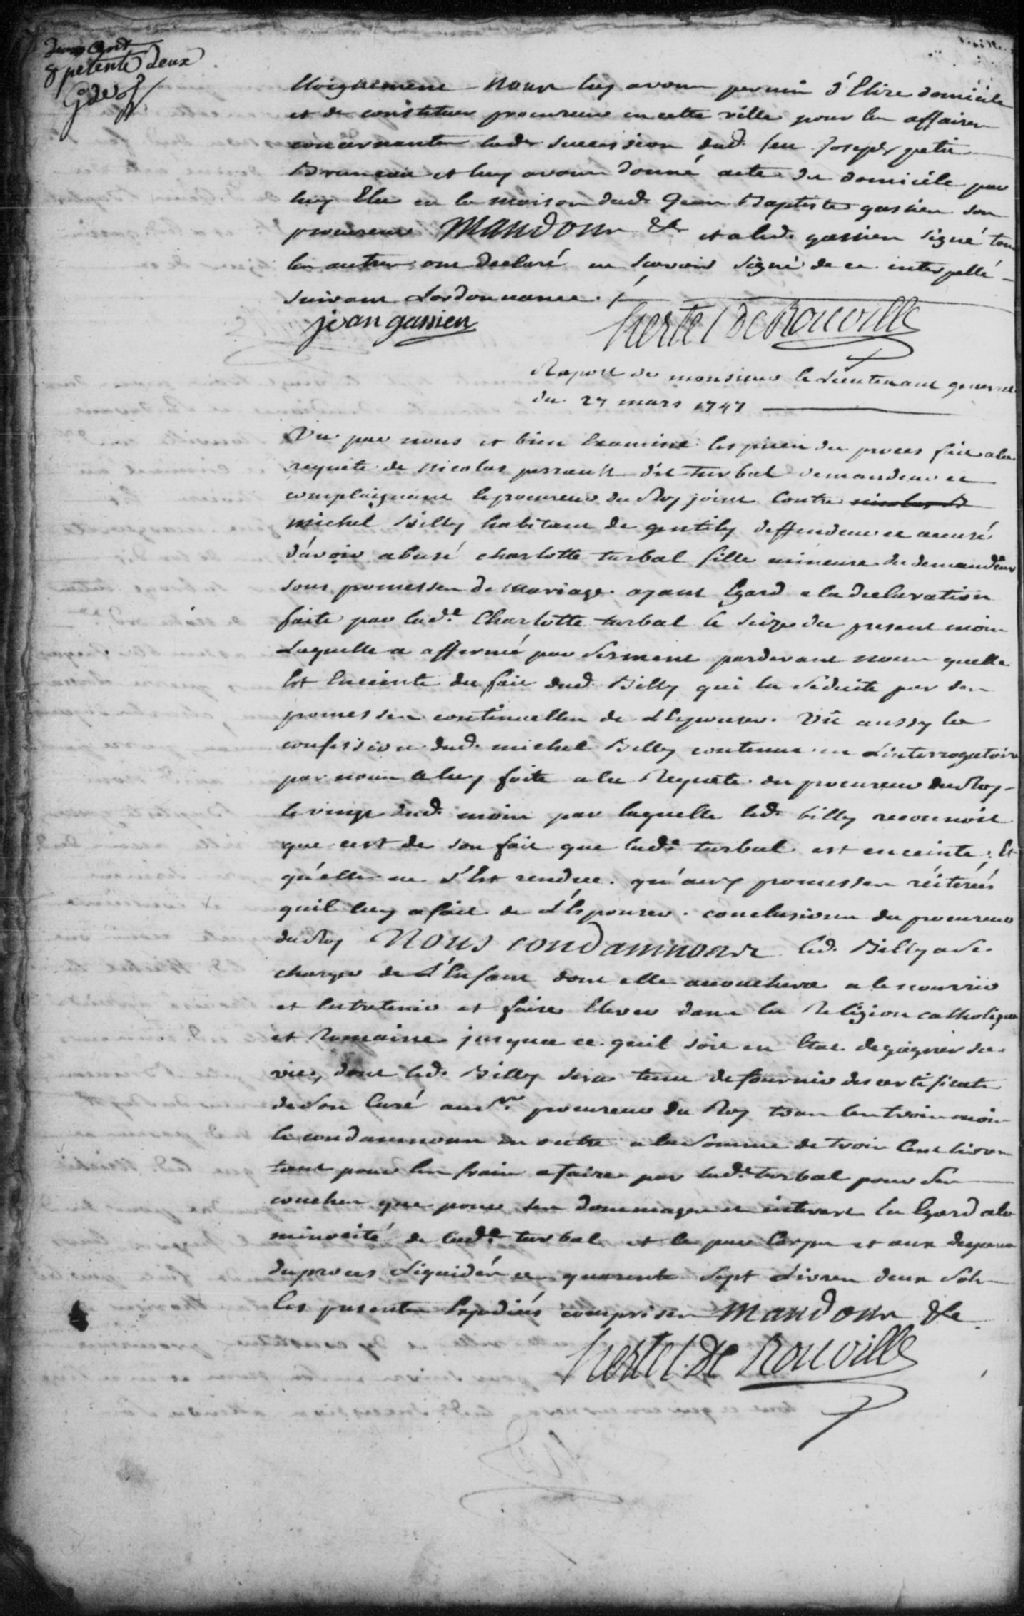 deux cent
septente deux
Eloignement nous luy avons permis d'Elire domicile
et de constituer procureur en cette ville pour les affaires
concernante lade succession dud. feu Joseph petit
Bruneau et luy avons donné acte du domicile par
luy Elu en la maison dud. Jean Baptiste gassien son
procureur Mandons &c et a led. gassien signé tous
les autres ont declaré ne scavoir signé de ce interpellé
suivant Lordonnance ./.
jean gassien
hertel de Rouville
Raport de monsieur le Lieutenant general
du 27 mars 1747
Vu par nous et bien Examiné les pieces du proces fait a la
requete de Nicolas perrault dit turbal demandeur et
complaignant le procureur du Roy joint Contre
Michel Billy habitant de gentily deffendeur et accusé
d'avoir abusé charlotte turbal fille mineure du demandeur
sous promesses de mariage. ayant Egard a la declaration
faite par lade Charlotte turbal le seize du present mois
Laquelle a affermé par serment pardevant nous quelle
Est Enceinte du fait dud. Billy qui la seduite par des
promesses continuelles de L'Epouser. Vû aussy la
confession dud. michel Billy contenue en Linterrogatoire
par nous a luy faite a la Requete du procureur du Roy
le vingt dud. mois par laquelle led. billy reconnoit
que cest de son fait que lade turbal est enceinte. Et
qu'elle ne s'Est rendue qu'aux promesses réiterées
quil luy a fait de L'Epouser. conclusions du procureur
du Roy Nous condamnons led. Billy a se
charger de L'Enfant dont elle accouchera a le nourrir
et Entretenir et faire Elever dans la Religion catholique
et Romaine jusqua ce quil soit en Etat de gagner sa
vie, dont led. Billy sera tenu de fournir des certificats
de son Curé au Sr. procureur du Roy tous les trois mois
le condamnons en outre a la somme de trois Cent livres
tant pour les frais a faire par lade turbal pour ses
couches que pour ses dommages et interest Eu Egard a la
minorité de lade turbal et le par Corps et aux depens
du proces Liquidés a quarente sept Livres deux sols
Les presentes Expediés comprises Mandons &c
hertel de Rouville